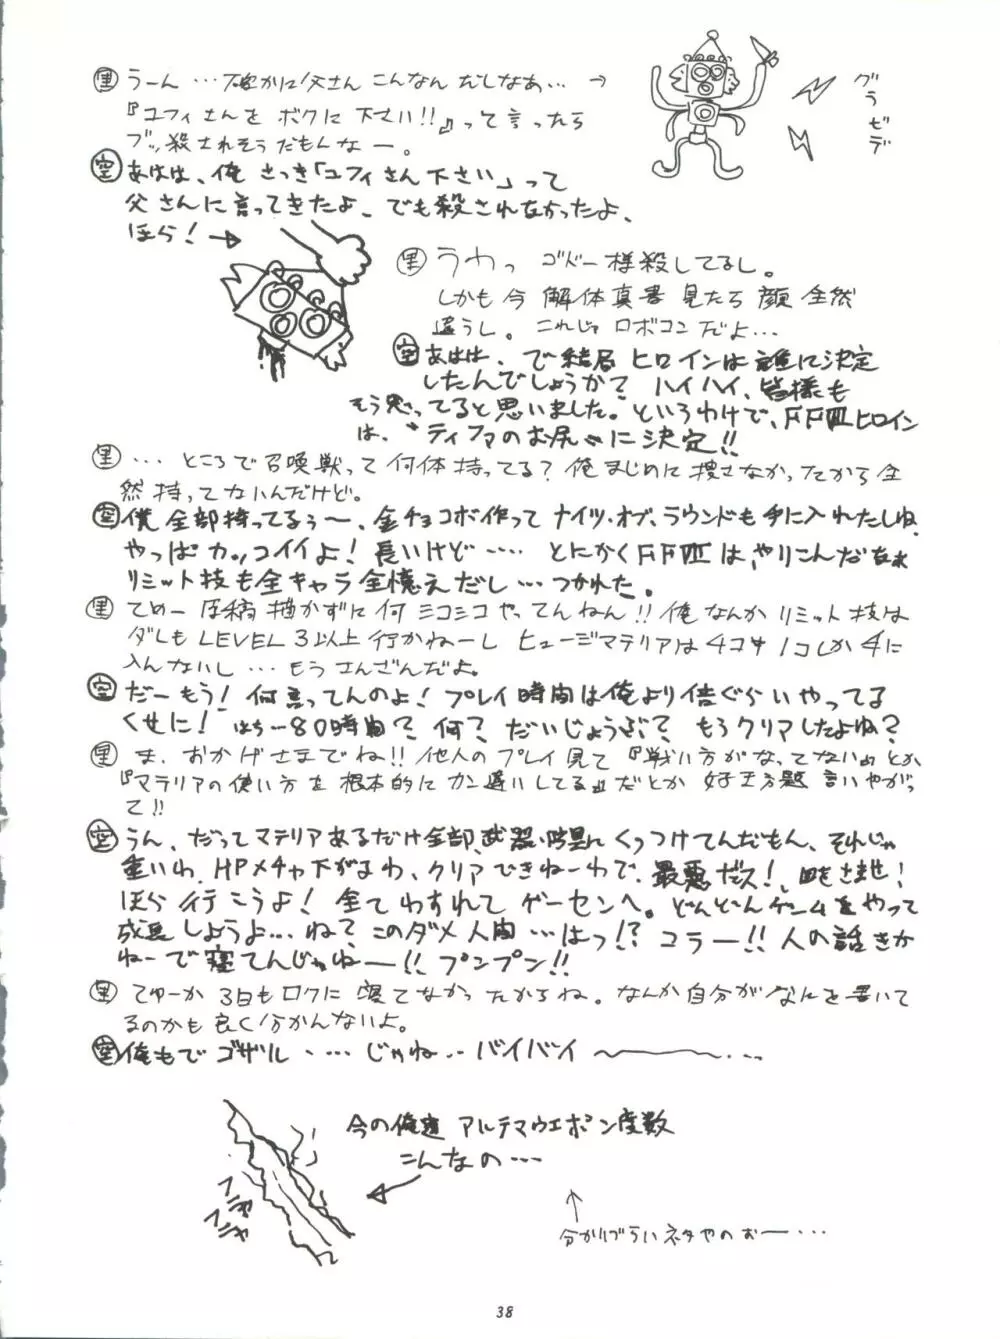 黒 うーん …確かに父さん こんなん だしなあ… →
『ユフィさんを ボクに 下さい!!』って言ったら
ブッ殺されそうだもんなー。
グラビデ
空 あはは、俺 さっき「ユフィさん下さい」って
父さんに言ってきたよ、でも殺されなかったよ、
ほら! →
黒 うわっ ゴドー様殺してるし。
しかも今 解体真書 見たら 顔 全然
違うし。これじゃ ロボコン だよ…
空 あはは、で結局 ヒロインは誰に決定
したんでしょうか? ハイハイ、皆様も
そう思ってると思いました。というわけで、FFⅦヒロイン
は、"ティファのお尻"に決定!!
黒 … ところで召喚獣って 何体持ってる? 俺まじめに捜さなかったから全
然持ってないんだけど。
空 僕 全部持ってるぅ〜、金チョコボ作って ナイツ・オブ・ラウンドも手に入れたしね
やっぱカッコイイよ! 長いけど…… とにかくFFⅦは、やりこんだなぁ
リミット技も全キャラ全憶えだし…つかれた。
黒 てめー 原稿描かずに何ミコミコやってんねん!! 俺なんかリミット技は
ダレもLEVEL3以上行かねーし ヒュージマテリアは4コ中1コしか手に
入んないし … もうさんざんだよ。
空 だーもう! 何言ってんのよ! プレイ時間は俺より倍ぐらいやってる
くせに! はちー80時間? 何? だいじょうぶ? もうクリアしたよね?
黒 ま、おかげさまでね!! 他人のプレイ見て『戦い方がなってない』とか
『マテリアの使い方を根本的にカン違いしてる』だとか 好き方題 言いやがっ
て!!
空 うん、だってマテリアあるだけ全部、武器・防具にくっつけてんだもん、それじゃ
重いわ、HPメチャ下がるわ、クリアできねーわで、最悪だス!、目をさませ!
ほら 行こうよ! 全てわすれて ゲーセンへ。どんどんゲームをやって
成長しようよ… ね? このダメ人間 …はっ!? コラー!! 人の話きか
ねーで寝てんじゃねー!! プンプン!!
黒 てゆーか 3日もロクに 寝てなかったからね。なんか自分がなにを書いて
るのかも良く分かんないよ。
空 俺もで ゴザル ・… じゃね‥ バイバイ 〜
今の俺達 アルテマウエポン度数
こんなの…
フニャ フニャ
↑
分かりづらいネタやのぉー…
38